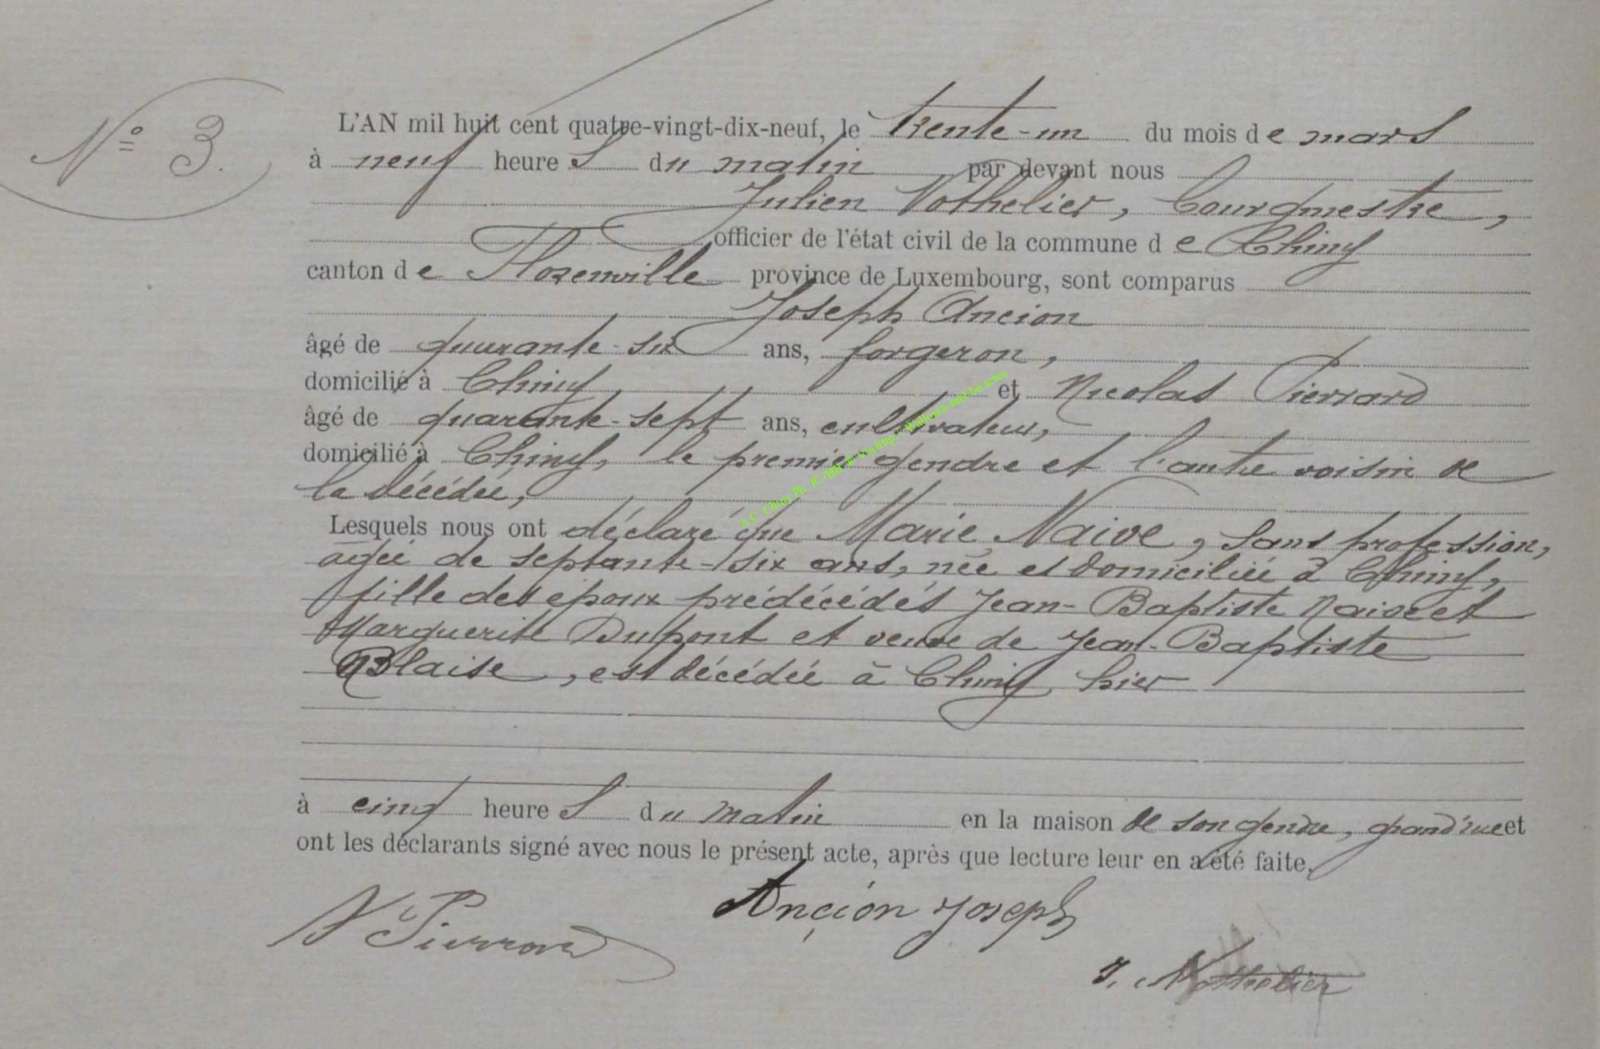 N° 3.
L'AN mil huit cent quatre-vingt-dix-neuf, le trente-un du mois de mars
à neuf heures du matin par devant nous
Julien Vothelier, bourgmestre,
officier de l'état civil de la commune de Chiny
canton de Florenville province de Luxembourg, sont comparus
Joseph Ancion
âgé de quarante-six ans, forgeron,
domicilié à Chiny et Nicolas Pierrard
âgé de quarante-sept ans, cultivateur,
domicilié à Chiny, le premier gendre et l'autre voisin de
la décédée,
Lesquels nous ont déclaré que Marie Naive, sans profession,
âgée de septante-six ans, née et domiciliée à Chiny,
fille des époux prédécédés Jean-Baptiste Naive et
Marguerite Dupont et veuve de Jean-Baptiste
Blaise, est décédée à Chiny hier
à cinq heures du matin en la maison de son gendre, grand'rue et
ont les déclarants signé avec nous le présent acte, après que lecture leur en a été faite.
N Pierrard
Ancion Joseph
J. Vothelier